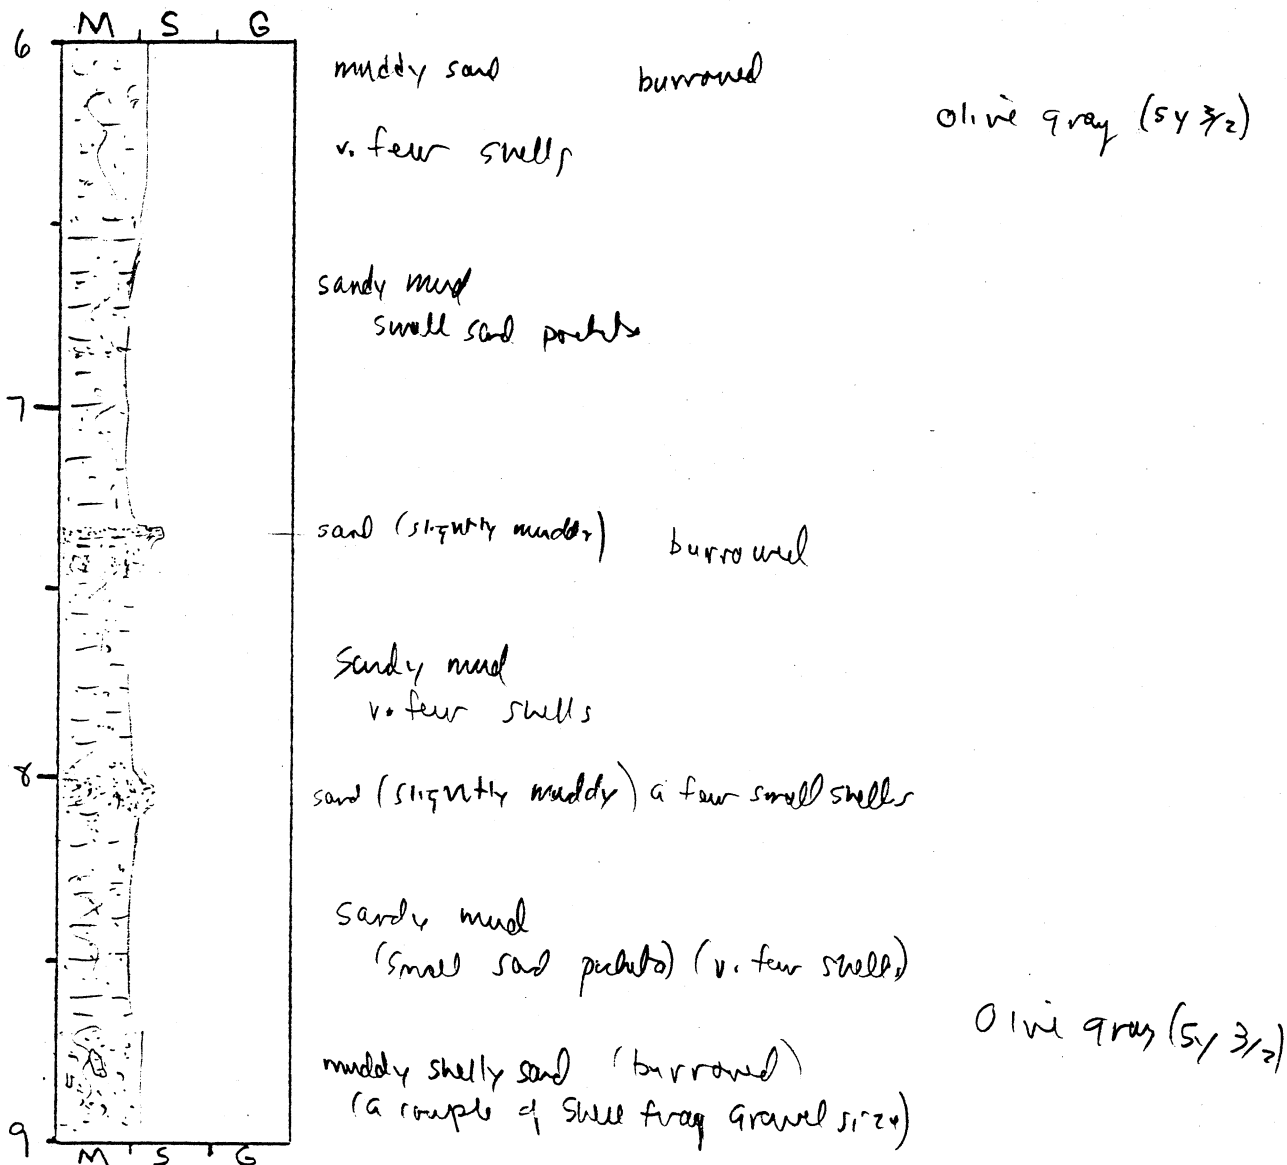 M S G
6
muddy sand burrowed
Olive gray (5Y 3/2)
v. few shells
sandy mud
small sand pockets
7
sand (slightly muddy) burrowed
Sandy mud
v. few shells
8
sand (slightly muddy) a few small shells
Sandy mud
(small sand pockets) (v. few shells)
Olive gray (5y 3/2)
muddy shelly sand (burrowed)
(a couple of shell frag gravel size)
9
M S G